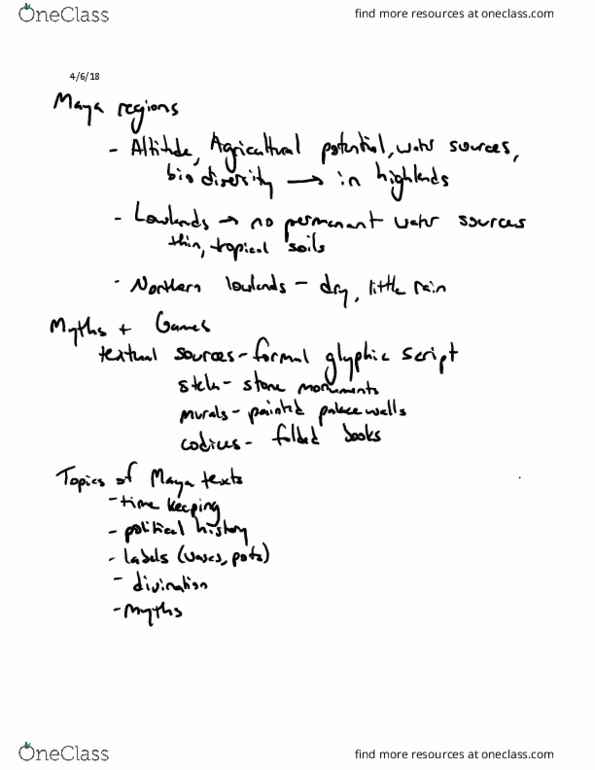 OneClass
find more resources at oneclass.com
4/6/18
Maya regions
- Altitude, Agricultural potential, water sources,
bio diversity → in highlands
- Lowlands → no permanant water sources
thin, tropical soils
- Northern lowlands - dry, little rain
Myths + Games
textual sources - formal glyphic script
stela - stone monuments
murals - painted palace walls
codices - folded books
Topics of Maya texts
- time keeping
- political history
- labels (vases, pots)
- divination
- myths
OneClass
find more resources at oneclass.com